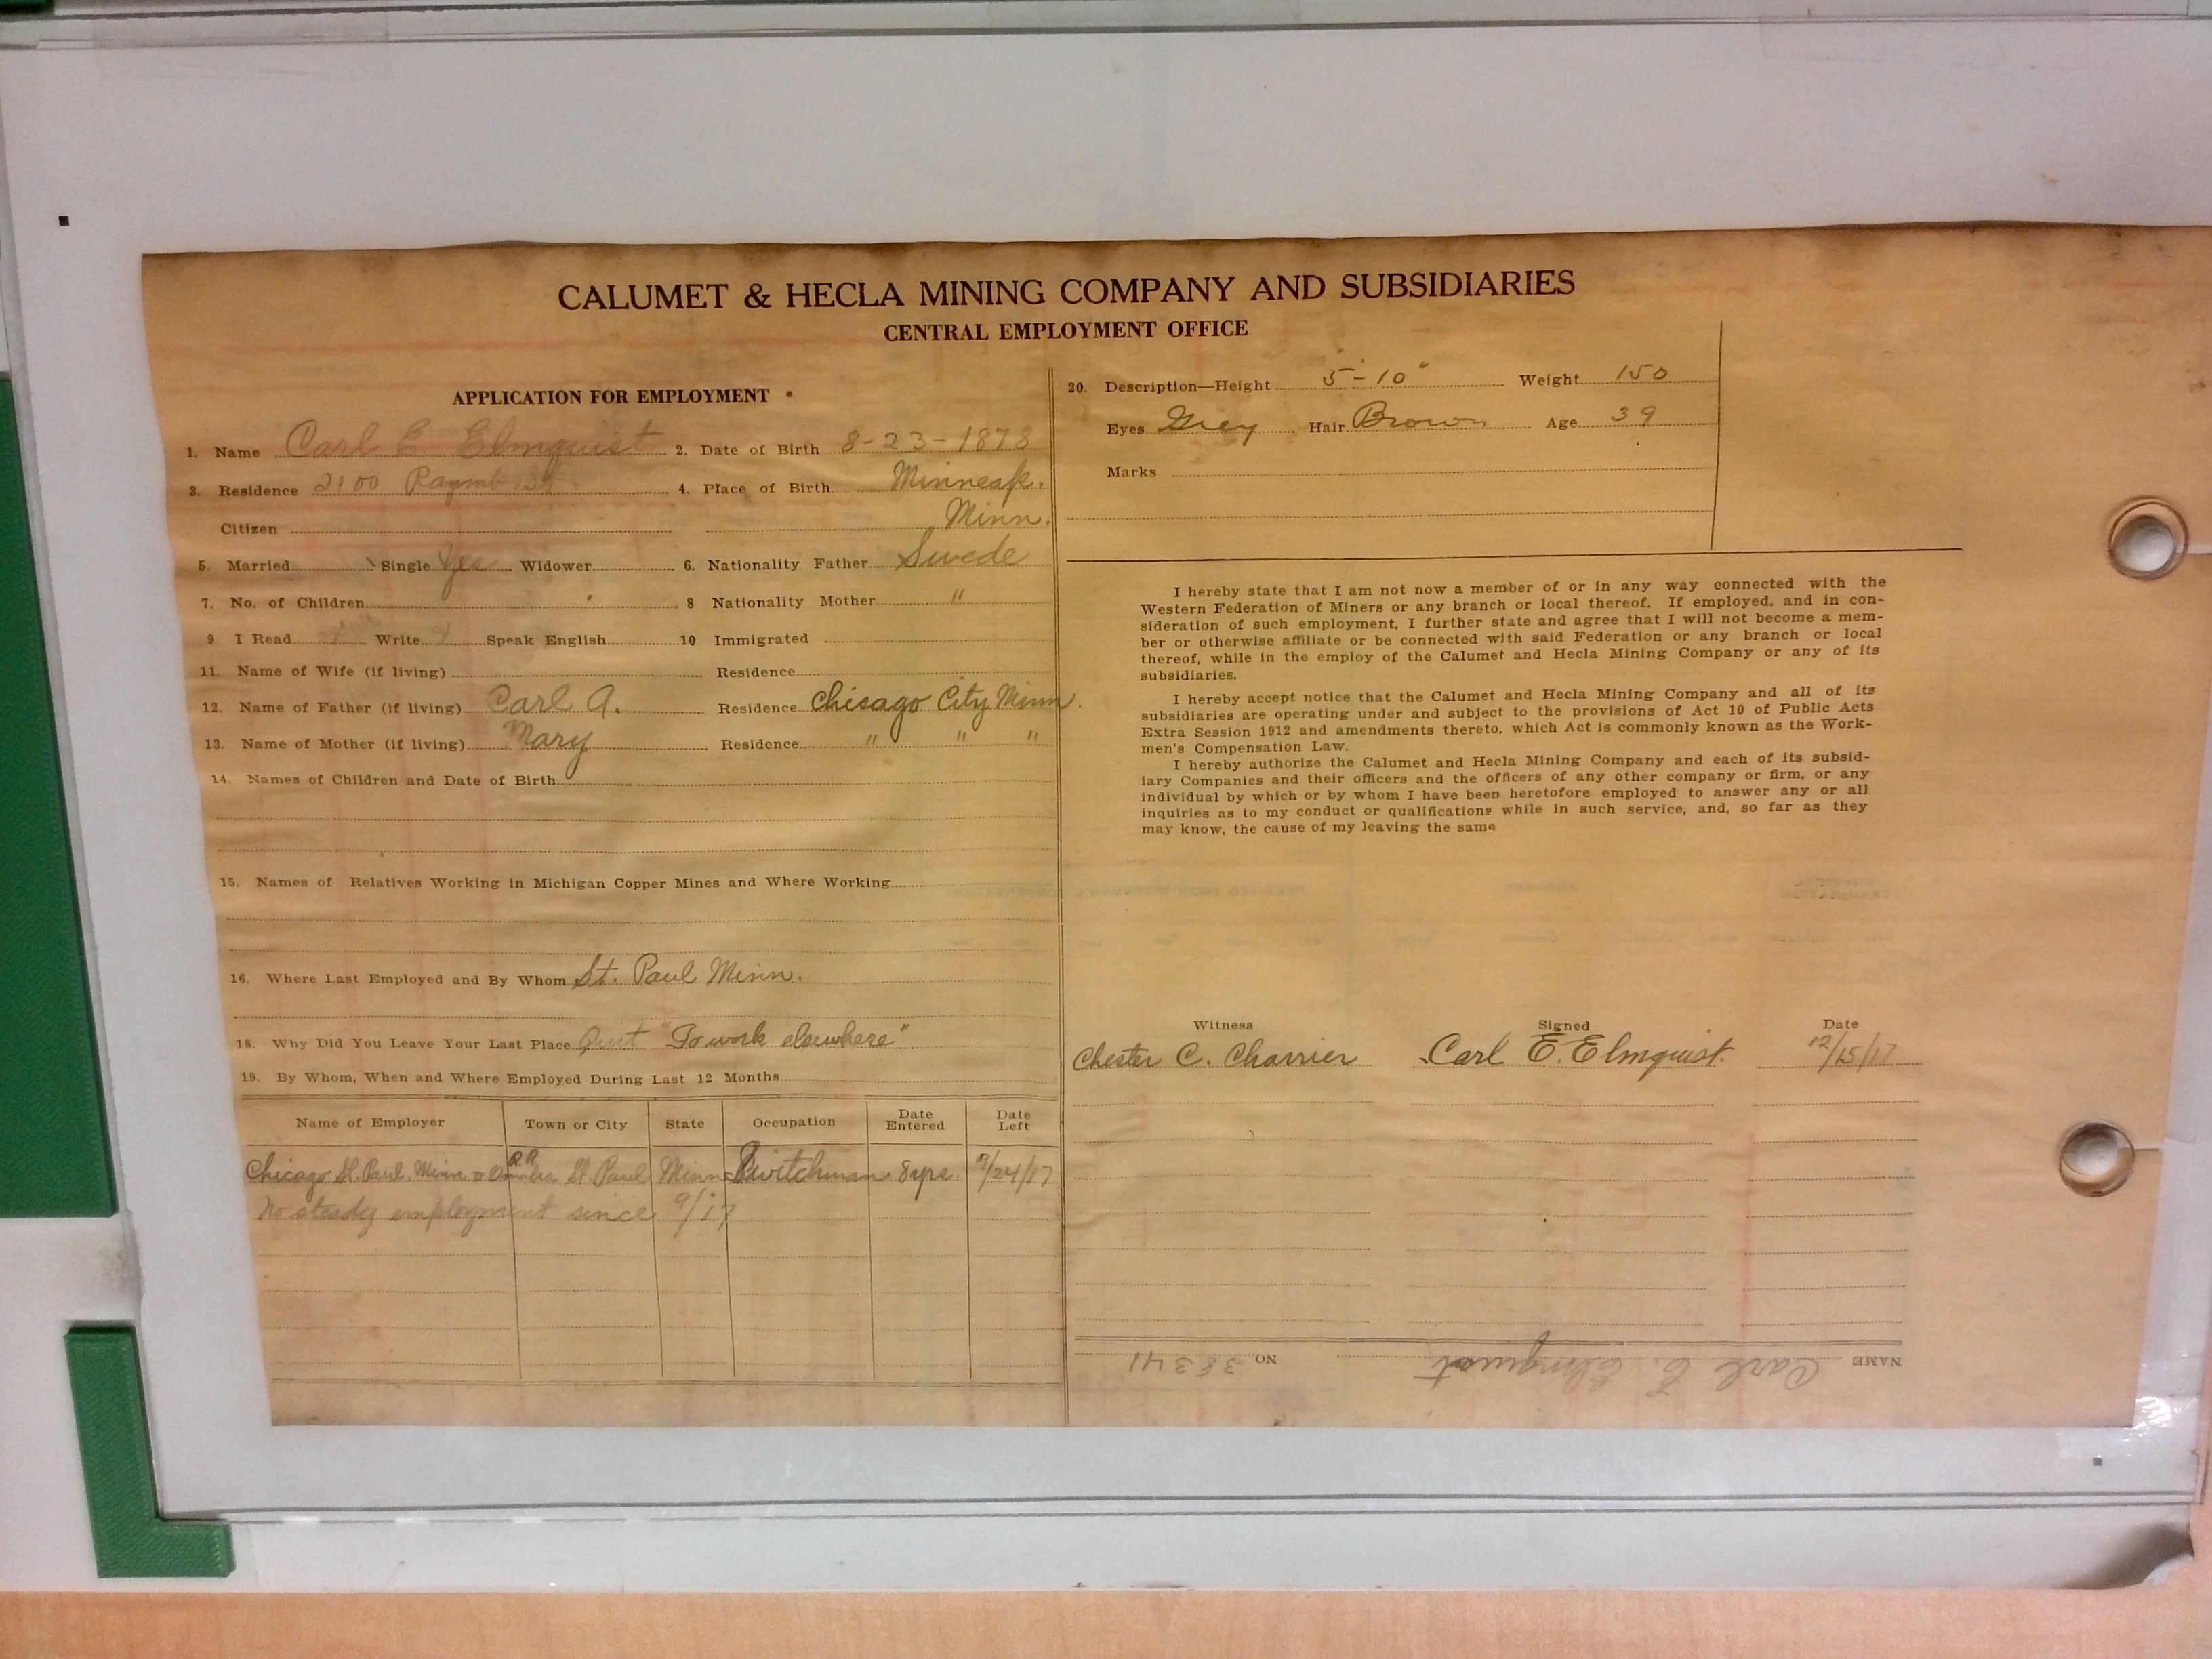 CALUMET & HECLA MINING COMPANY AND SUBSIDIARIES
CENTRAL EMPLOYMENT OFFICE
APPLICATION FOR EMPLOYMENT
1. Name Carl E. Elmquist 2. Date of Birth 8-23-1878
3. Residence 2100 4. Place of Birth Minneap.
Citizen Minn.
5. Married Single Yes Widower 6. Nationality Father Swede
7. No. of Children 8 Nationality Mother "
9 I Read Write Speak English 10 Immigrated
11. Name of Wife (if living) Residence
12. Name of Father (if living) Carl A. Residence Chisago City Minn.
13. Name of Mother (if living) Mary Residence " " "
14. Names of Children and Date of Birth
15. Names of Relatives Working in Michigan Copper Mines and Where Working
16. Where Last Employed and By Whom St. Paul Minn.
18. Why Did You Leave Your Last Place Quit "To work elsewhere"
19. By Whom, When and Where Employed During Last 12 Months
Name of Employer Town or City State Occupation Date Entered Date Left
Chicago St. Paul. Minn & Omaha R.R. St. Paul Minn Switchman 8 yrs. 9/24/17
No steady employment since 9/17
20. Description—Height 5-10" Weight 150
Eyes Grey Hair Brown Age 39
Marks
I hereby state that I am not now a member of or in any way connected with the
Western Federation of Miners or any branch or local thereof. If employed, and in con-
sideration of such employment, I further state and agree that I will not become a mem-
ber or otherwise affiliate or be connected with said Federation or any branch or local
thereof, while in the employ of the Calumet and Hecla Mining Company or any of its
subsidiaries.
I hereby accept notice that the Calumet and Hecla Mining Company and all of its
subsidiaries are operating under and subject to the provisions of Act 10 of Public Acts
Extra Session 1912 and amendments thereto, which Act is commonly known as the Work-
men's Compensation Law.
I hereby authorize the Calumet and Hecla Mining Company and each of its subsid-
iary Companies and their officers and the officers of any other company or firm, or any
individual by which or by whom I have been heretofore employed to answer any or all
inquiries as to my conduct or qualifications while in such service, and, so far as they
may know, the cause of my leaving the same
Witness Signed Date
Chester C. Charrier Carl E. Elmquist. 12/15/17
NAME Carl E. Elmquist NO 38341